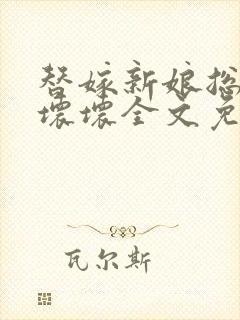 替嫁新娘总
坏坏全文免
瓦尔斯